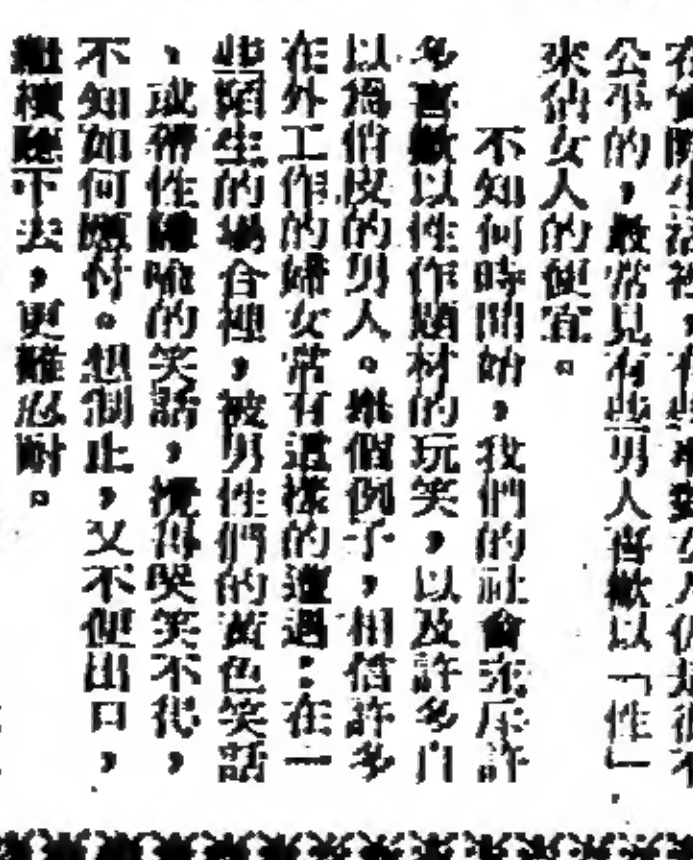 在實際生活裡，有些事對女人仍是很不
公平的，最常見有些男人喜歡以「性」
來佔女人的便宜。
不知何時開始，我們的社會充斥許
多喜歡以性作題材的玩笑，以及許多自
以為俏皮的男人。舉個例子，相信許多
在外工作的婦女常有這樣的遭遇：在一
些陌生的場合裡，被男性們的黃色笑話
、或帶性隱喻的笑話，攪得哭笑不得，
不知如何應付。想制止，又不便出口，
繼續聽下去，更難忍耐。